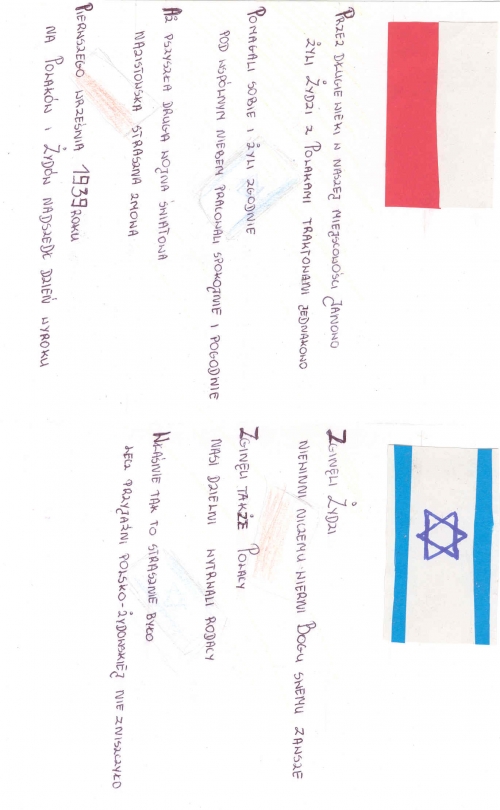 PRZEZ DŁUGIE WIEKI W NASZEJ MIEJSCOWOŚCI JANOWO
ŻYLI ŻYDZI Z POLAKAMI TRAKTOWANI JEDNAKOWO
POMAGALI SOBIE I ŻYLI ZGODNIE
POD WSPÓLNYM NIEBEM PRACOWALI SPOKOJNIE I POGODNIE
AŻ PSZYSZŁA DRUGA WOJNA ŚWIATOWA
NAZISTOWSKA STRASZNA ZMOWA
PIERWSZEGO WRZEŚNIA 1939 ROKU
NA POLAKÓW I ŻYDÓW NADSZEDŁ DZIEŃ WYROKU
ZGINĘLI ŻYDZI
NIEWINNI NICZEMU WIERNI BOGU SWEMU ZAWSZE
ZGINĘLI TAKŻE POLACY
NASI DZIELNI WYTRWALI RODACY
WŁAŚNIE TAK TO STRASZNIE BYŁO
LECZ PRZYJAŹNI POLSKO-ŻYDOWSKIEJ NIE ZNISZCZYŁO